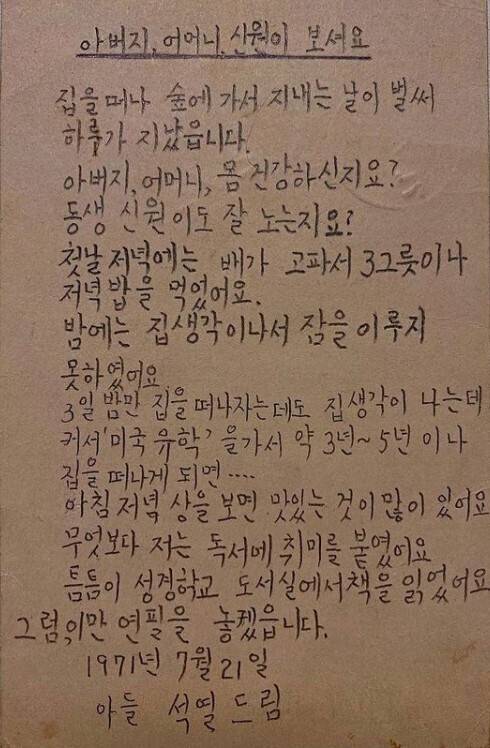 아버지, 어머니, 신원이 보셔요
집을 떠나 숲에 가서 지내는 날이 벌써
하루가 지났읍니다.
아버지, 어머니, 몸 건강하신지요?
동생 신원이도 잘 노는지요?
첫날 저녁에는 배가 고파서 3그릇이나
저녁밥을 먹었어요.
밤에는 집생각이나서 잠을 이루지
못하였어요
3일 밤만 집을 떠나자는데도 집생각이 나는데
커서 '미국 유학' 을가서 약 3년~5년 이나
집을 떠나게 되면····
아침 저녁 상을 보면 맛있는 것이 많이 있어요
무엇보다 저는 독서에 취미를 붙였어요
틈틈이 성경학교 도서실에서책을 읽었어요
그럼, 이만 연필을 놓겠읍니다.
1971년 7월 21일
아들 석열 드림